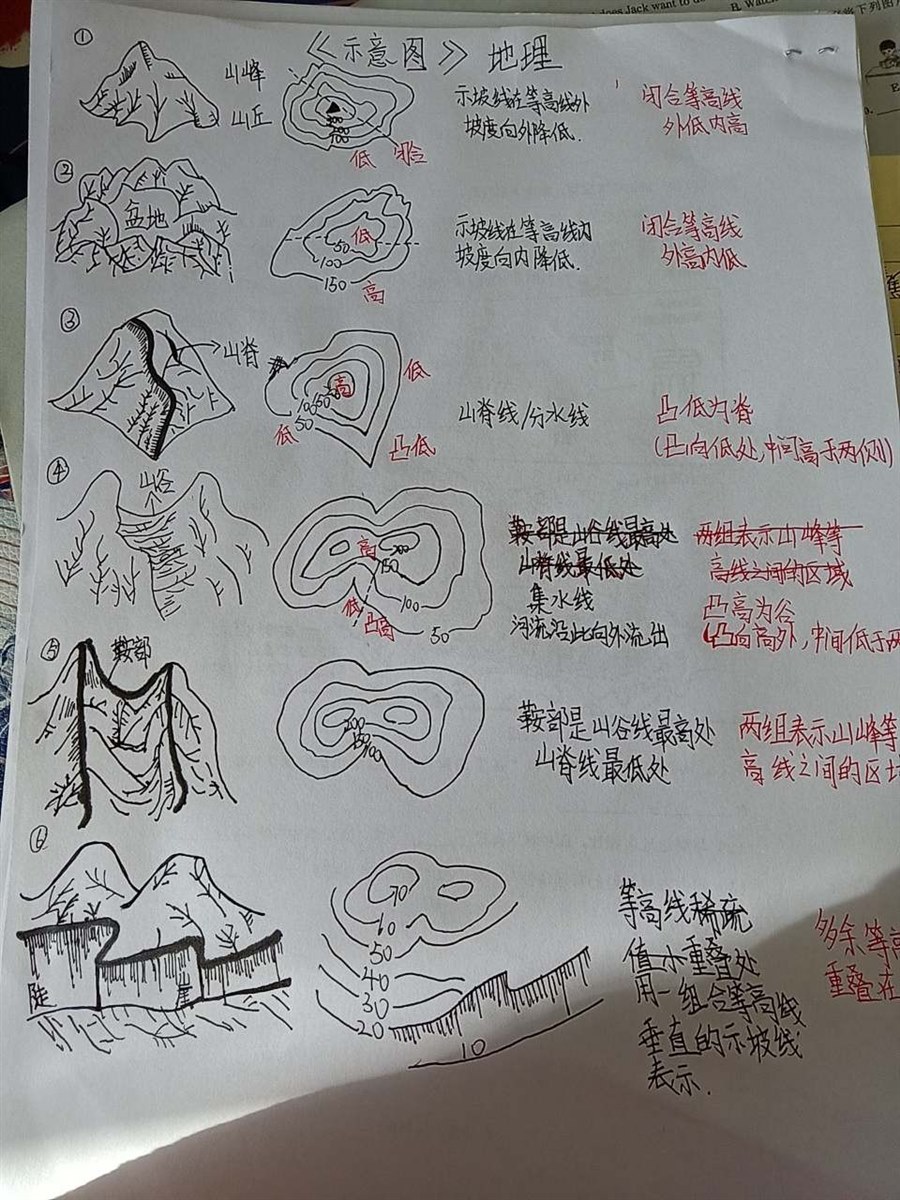 does Jack want to d
B. Wat
下列图
《示意图》 地理
①
山峰
山丘
100
低 闭合
示坡线在等高线外
坡度向外降低.
闭合等高线
外低内高
②
盆地
低
50
100
150
高
示坡线在等高线内
坡度向内降低.
闭合等高线
外高内低
③
山脊
高
低
100
50
低
凸低
山脊线/分水线
凸低为脊
(凸向低处,中间高于两侧)
④
山谷
高
200
150
低
凸高
100
50
鞍部是山谷线最高处
山脊线最低处
集水线
河流沿此向外流出
两组表示山峰等
高线之间的区域
凸高为谷
凸向高外,中间低于两
⑤
鞍部
200
150
100
鞍部是山谷线最高处
山脊线最低处
两组表示山峰等
高线之间的区
⑥
陡
崖
70
60
50
40
30
20
10
等高线稀疏
值小重叠处
用一组合等高线
垂直的示坡线
表示.
多余等高
重叠在